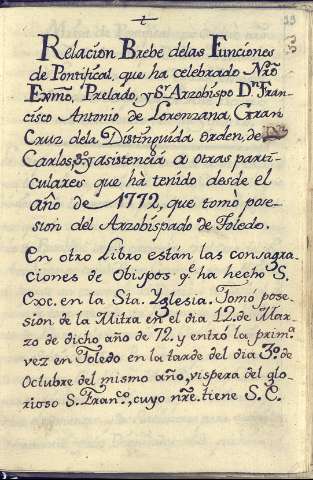 Relacion Brebe delas Funciones
de Pontifical, que ha celebrado Nrõ
Exmõ, Prelado, y Sr. Arzobispo Dn. Fran-
cisco Antonio de Lorenzana, Gran
Cruz dela Distinguida Orden, de
Carlos 3º y asistencia a otras parti-
culares que hà tenido desde el
año de 1772, que tomò pose-
sion del Arzobispado de Toledo.
En otro Libro están las consagra-
ciones de Obispos qe. ha hecho S.
Exc. en la Sta. Yglesia. Tomó pose-
sion de la Mitra en el dia 12 de Mar-
zo de dicho año de 72. y entró la prima.
vez en Toledo en la tarde del dia 3º. de
Octubre del mismo año, vispera del glo-
rioso S. Franco., cuyo nrẽ. tiene S. E.